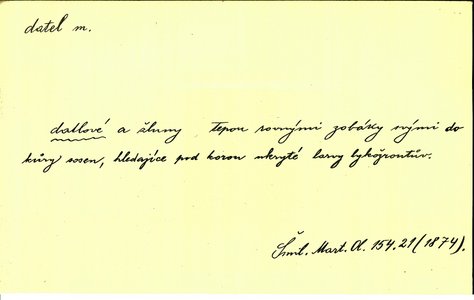 datel m.
datlové a žluny tepou rovnými zobáky svými do
kůry sosen, hledajíce pod korou ukryté larvy lykožroutův.
Šml. Mart. O. 154.21 (1874).